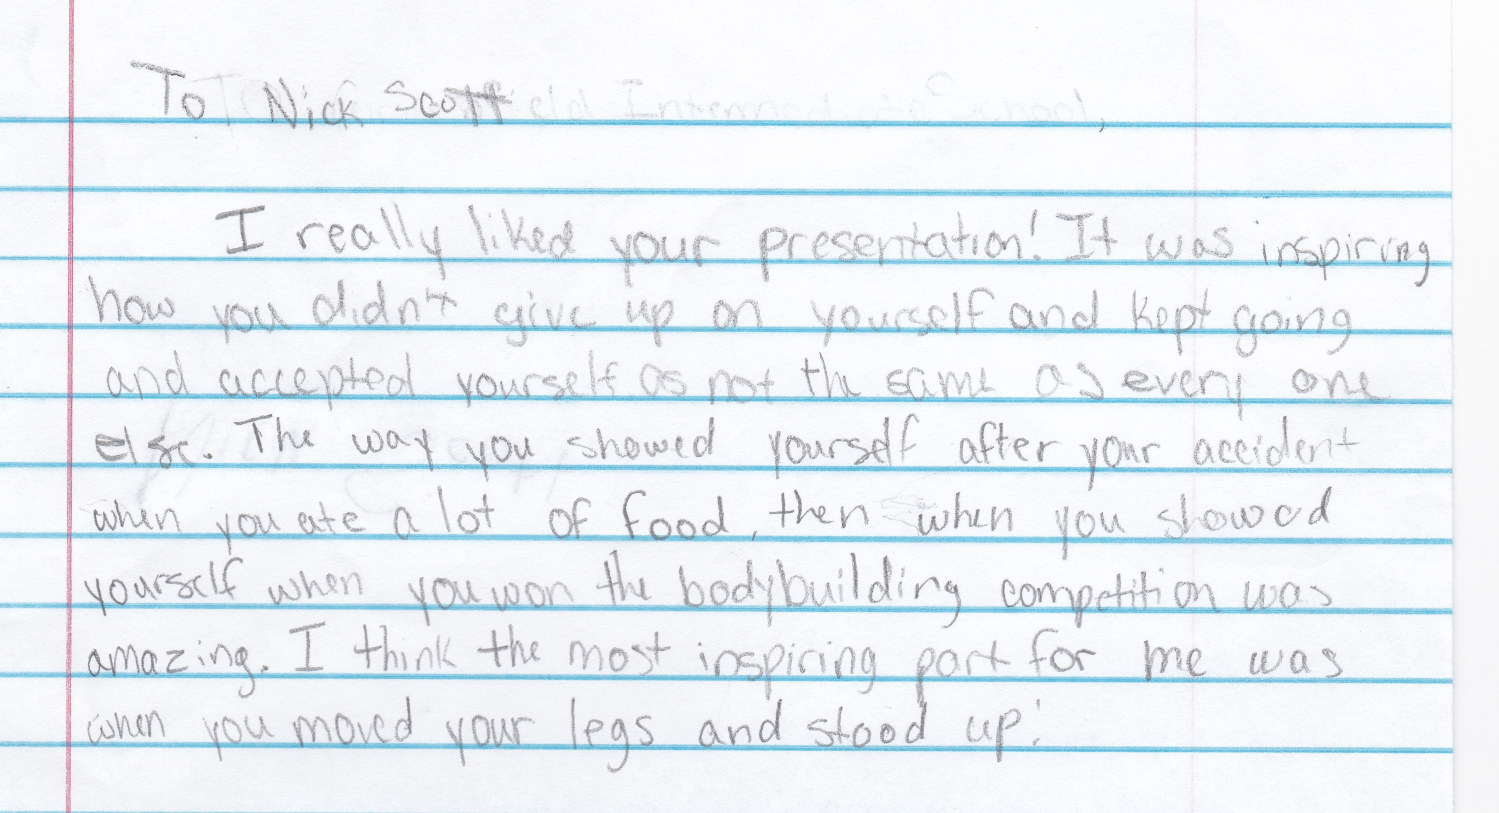 To Nick Scott
I really liked your presentation! It was inspiring
how you didn't give up on yourself and kept going
and accepted yourself as not the same as every one
else. The way you showed yourself after your accident
when you ate a lot of food, then when you showed
yourself when you won the bodybuilding competition was
amazing. I think the most inspiring part for me was
when you moved your legs and stood up!